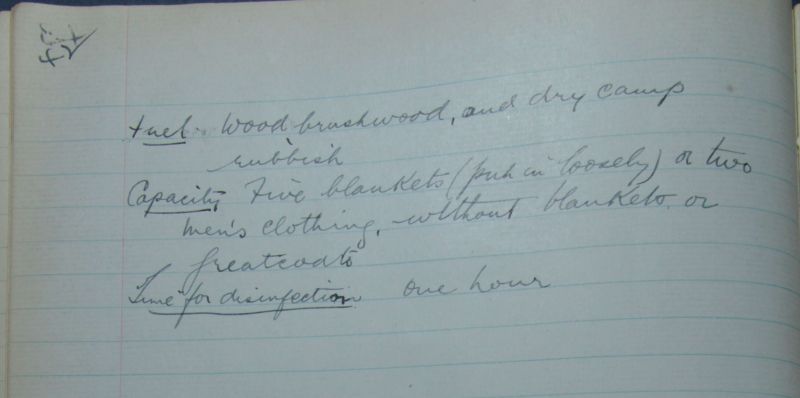 Fuel. Wood brushwood, and dry camp
rubbish
Capacity Five blankets (put in loosely) or two
men's clothing, without blankets or
greatcoats
Time for disinfection one hour